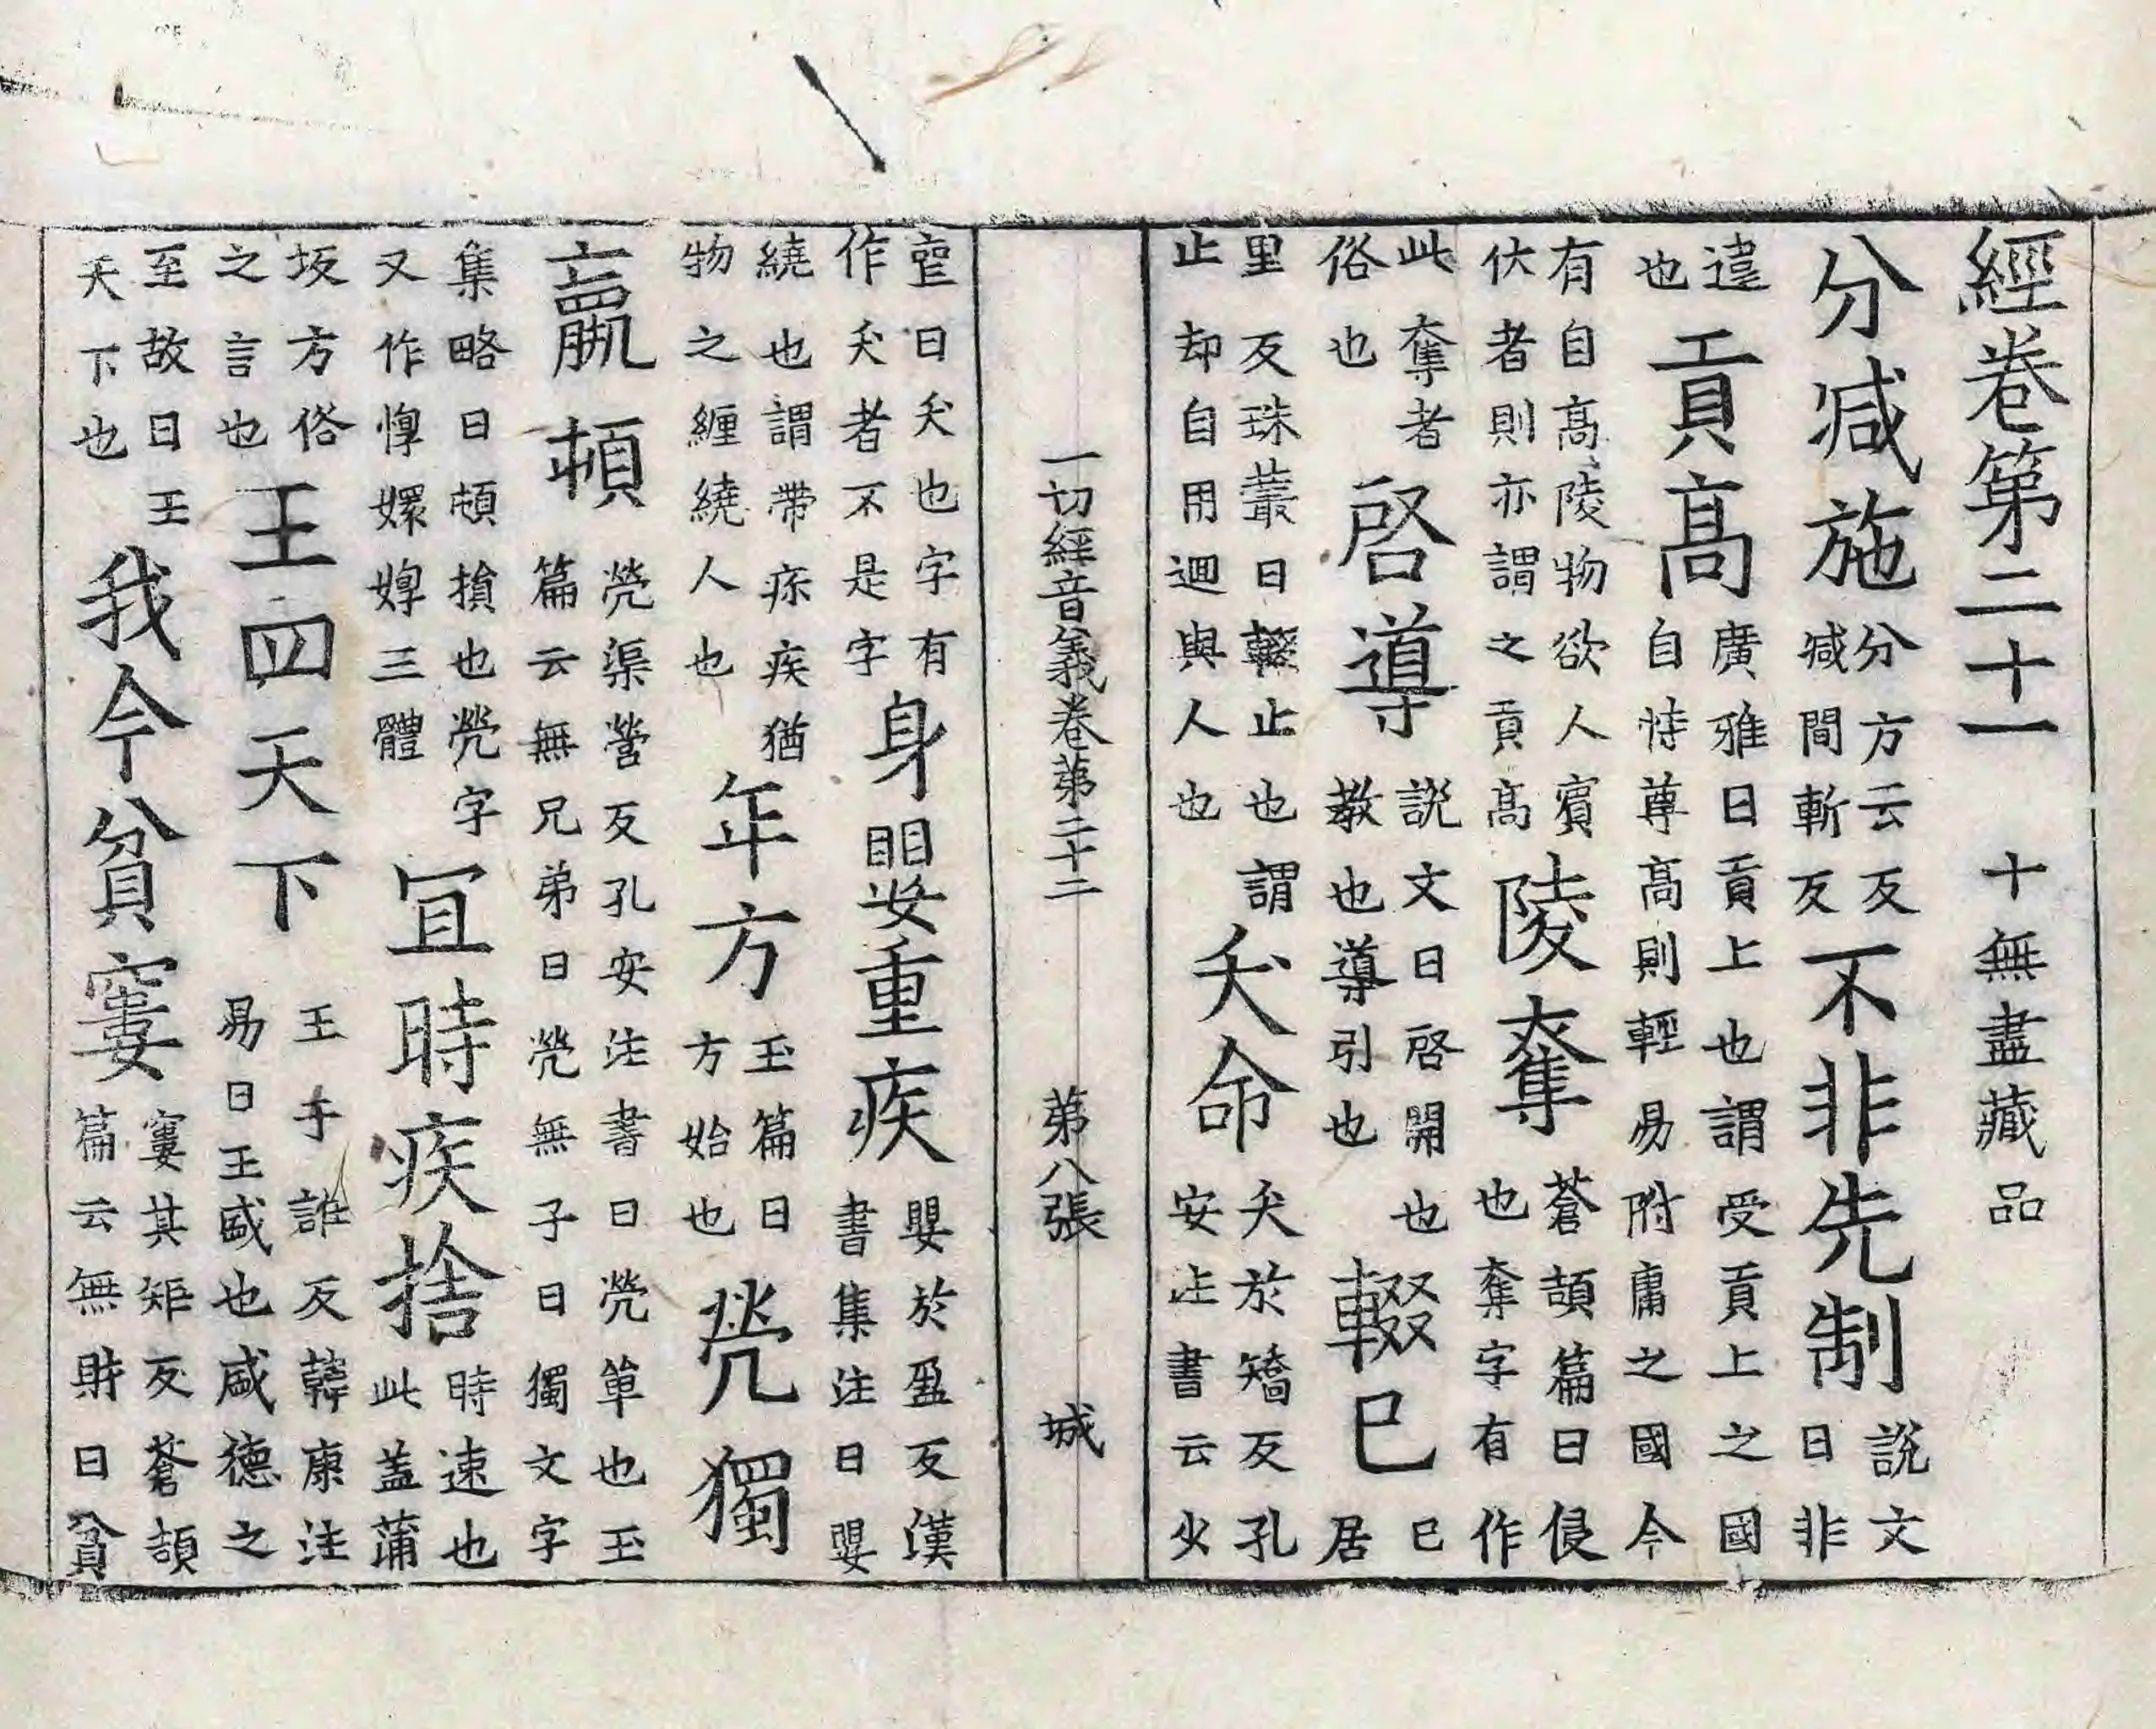 經卷第二十一　十無盡藏品
分減施分方云反減間斬反不非先制說文曰非
違也貢高廣雅曰貢上也謂受貢上之國自恃尊高則輕易附庸之國今
有自高陵物欲人賓伏者則亦謂之貢高陵奪蒼頡篇曰侵也奪字有作
此奪者俗也啓導說文曰啓開也教也導引也輟已已居
里反珠叢曰輟止也謂止却自用迴與人也夭命夭於矯反孔安注書云少
一切經音義卷第二十二　第八張　城
曰夭也字有作夭者不是字身嬰重疾嬰於盈反漢書集注曰嬰
繞也謂帶疾猶物之纏繞人也年方玉篇曰方始也煢獨
羸頓煢渠營反孔安注書曰煢單也玉篇云無兄弟曰煢無子曰獨文字
集略曰頓損也煢字又作惸嬛婷三體宜時疾捨時速也此蓋蒲
坂方俗之言也王四天下王于誰反韓康注易曰王盛也盛德之
至故曰王天下也我今貧窶窶其矩反蒼頡篇云無財曰貧